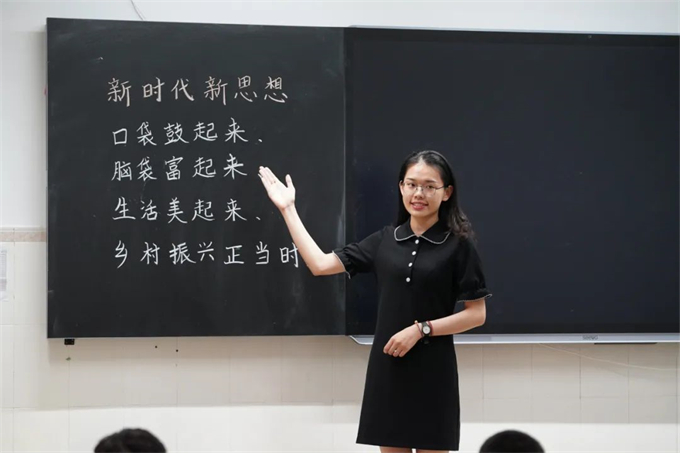 新时代新思想
口袋鼓起来、
脑袋富起来
生活美起来、
乡村振兴正当时